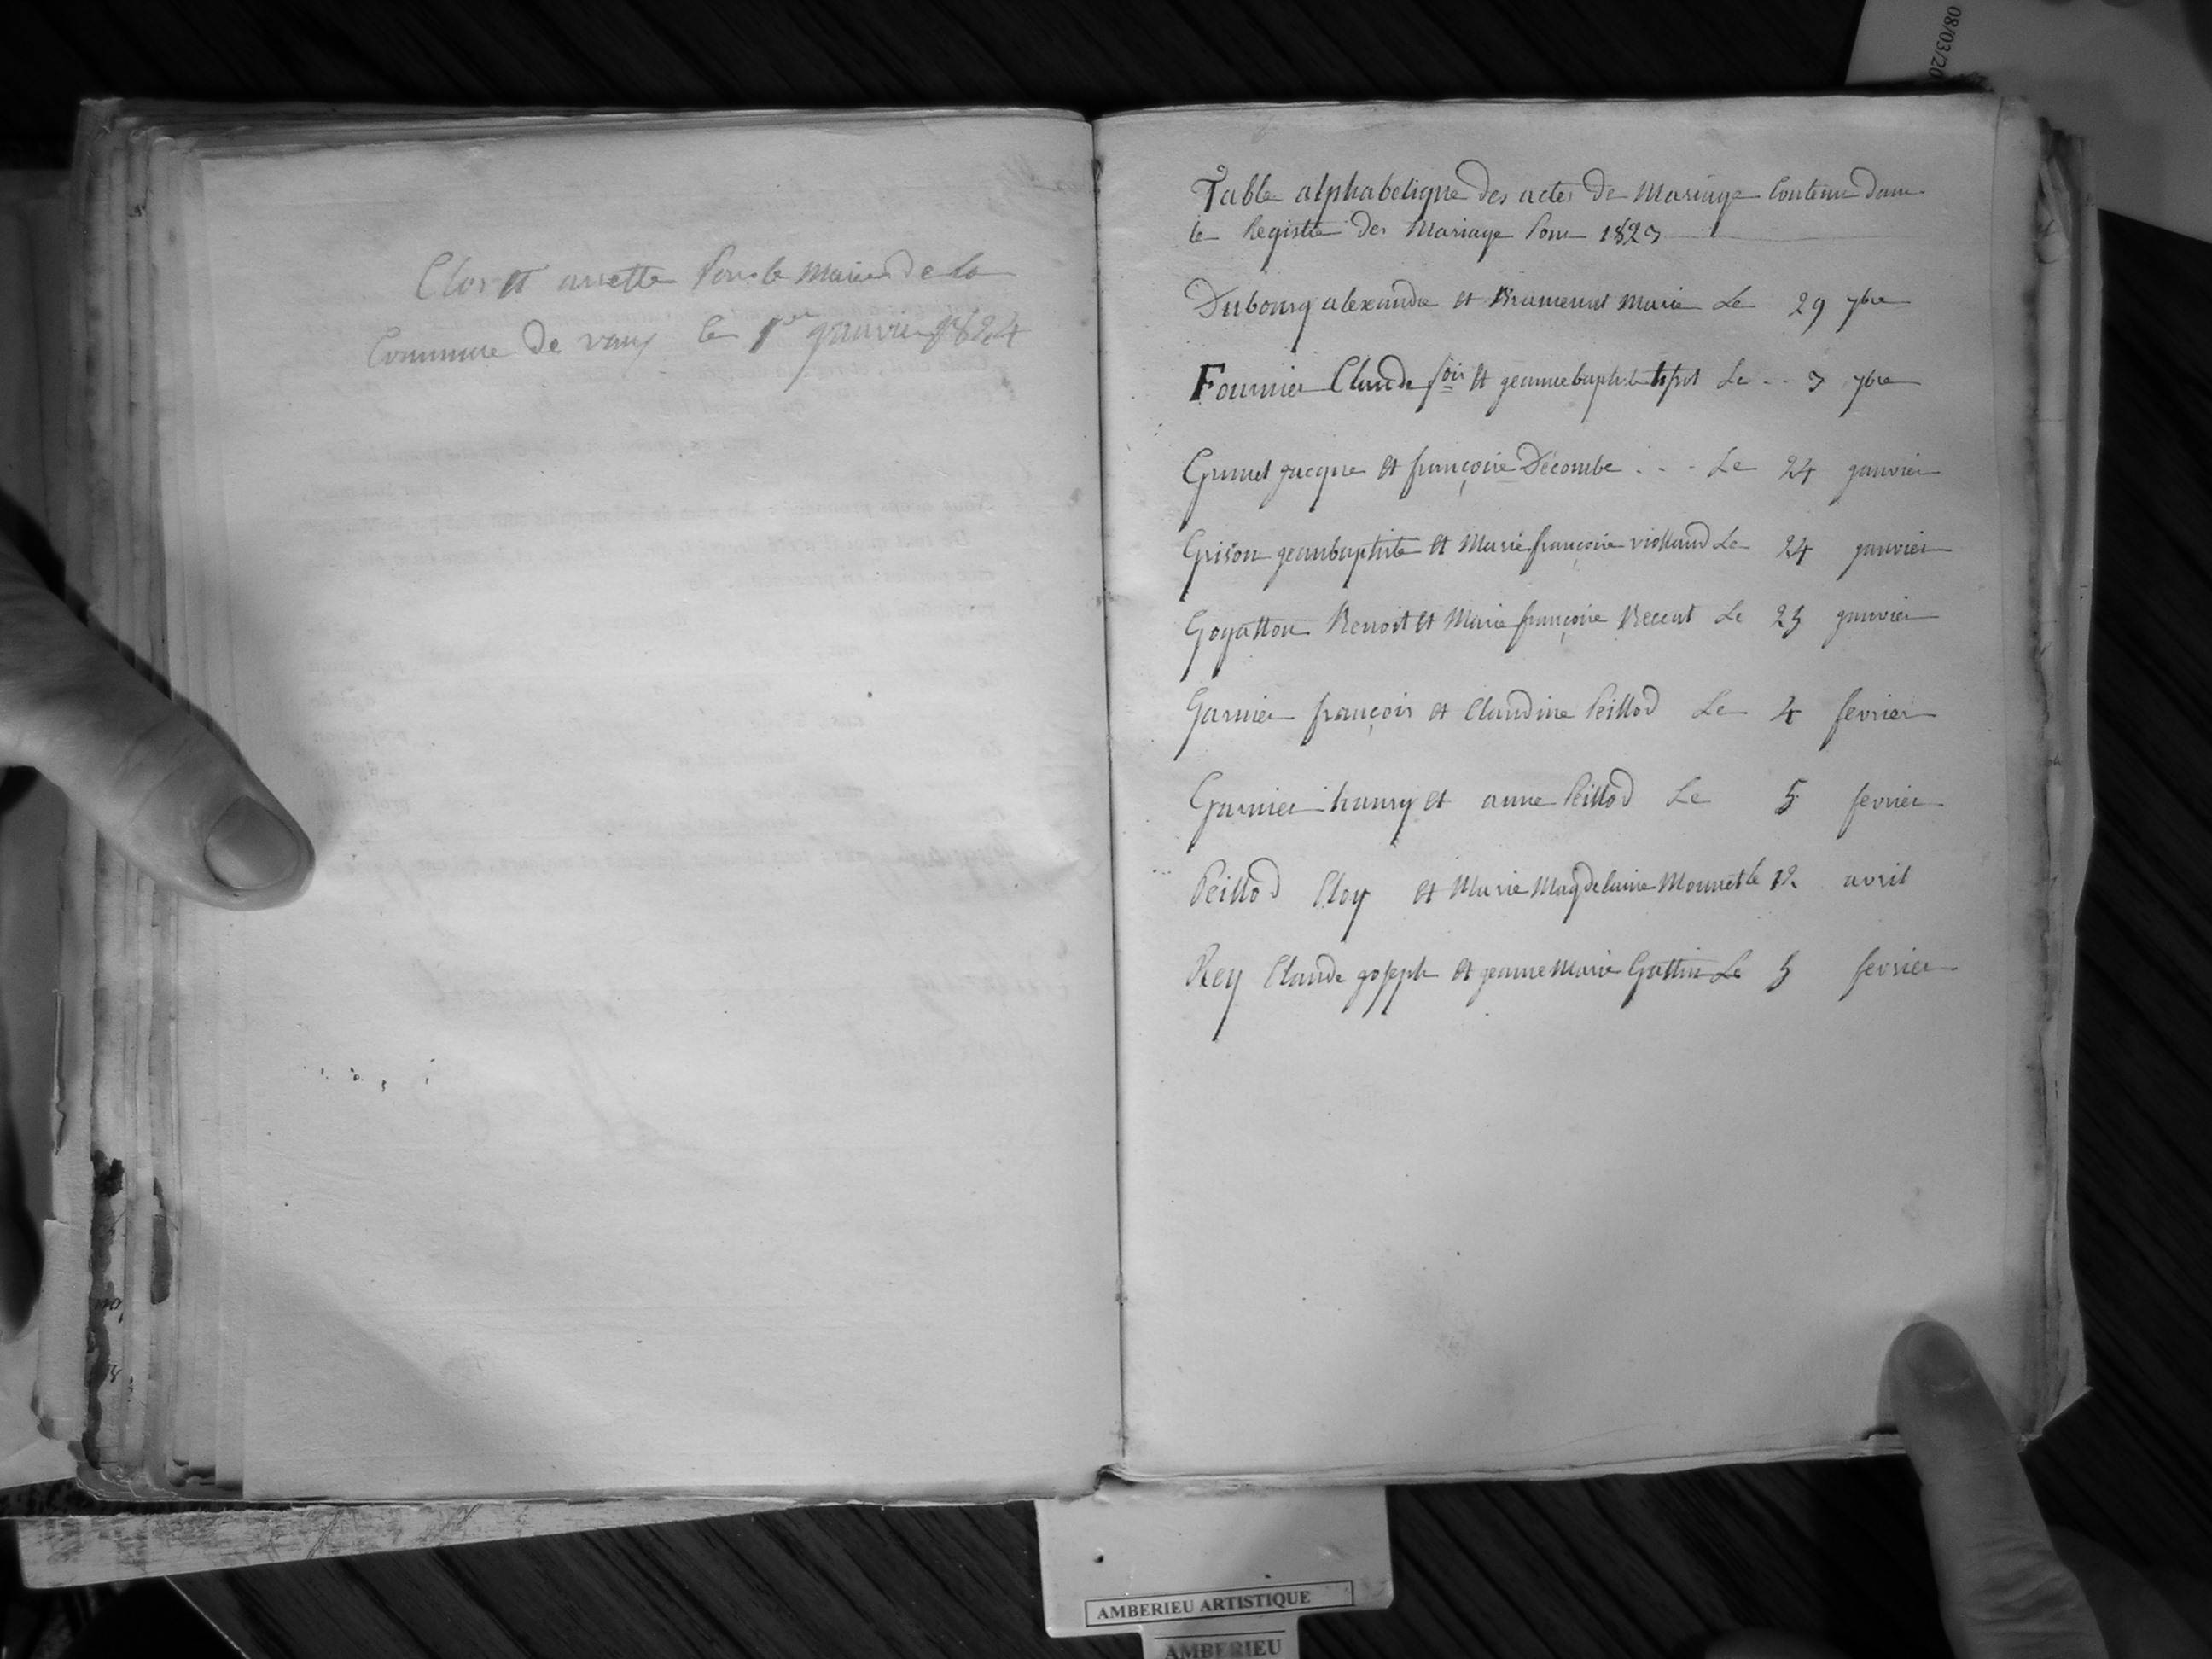 Clos et arrette Par le Maire de la
Commune de vaux le 1er janvier 1824
Table alphabetique des actes de Mariage Contenu dans
le Registre des Mariage Pour 1823
Dubourg alexandre et Marie Le 29 7bre
Fournier Claude fois et jeanne baptiste Le .. 3 9bre
Grumet jacque et françoise Décombe . . . Le 24 janvier
Grison jeanbaptiste et Marie françoise violland Le 24 janvier
Gogatton Benoit et Marie françoise Le 25 janvier
Garnier françois et Claudine Peillod Le 4 fevrier
Garnier et anne Peillod Le 5 fevrier
Peillod Eloy et Marie Magdelaine Monnet le 12 avril
Rey Claude joseph et jeanne Marie Gottin Le 5 fevrier
08/03/20
AMBERIEU ARTISTIQUE
AMBERIEU